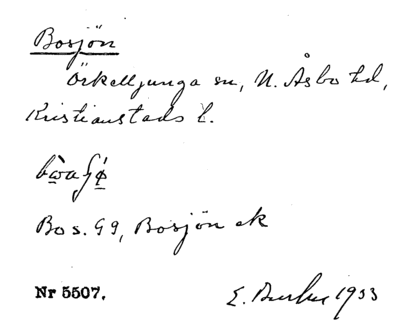 Bosjön
Örkelljunga sn, N. Åsbo hd,
Kristianstads l.
Bo s. 99, Bosjön ek
Nr 5507. E. 1933